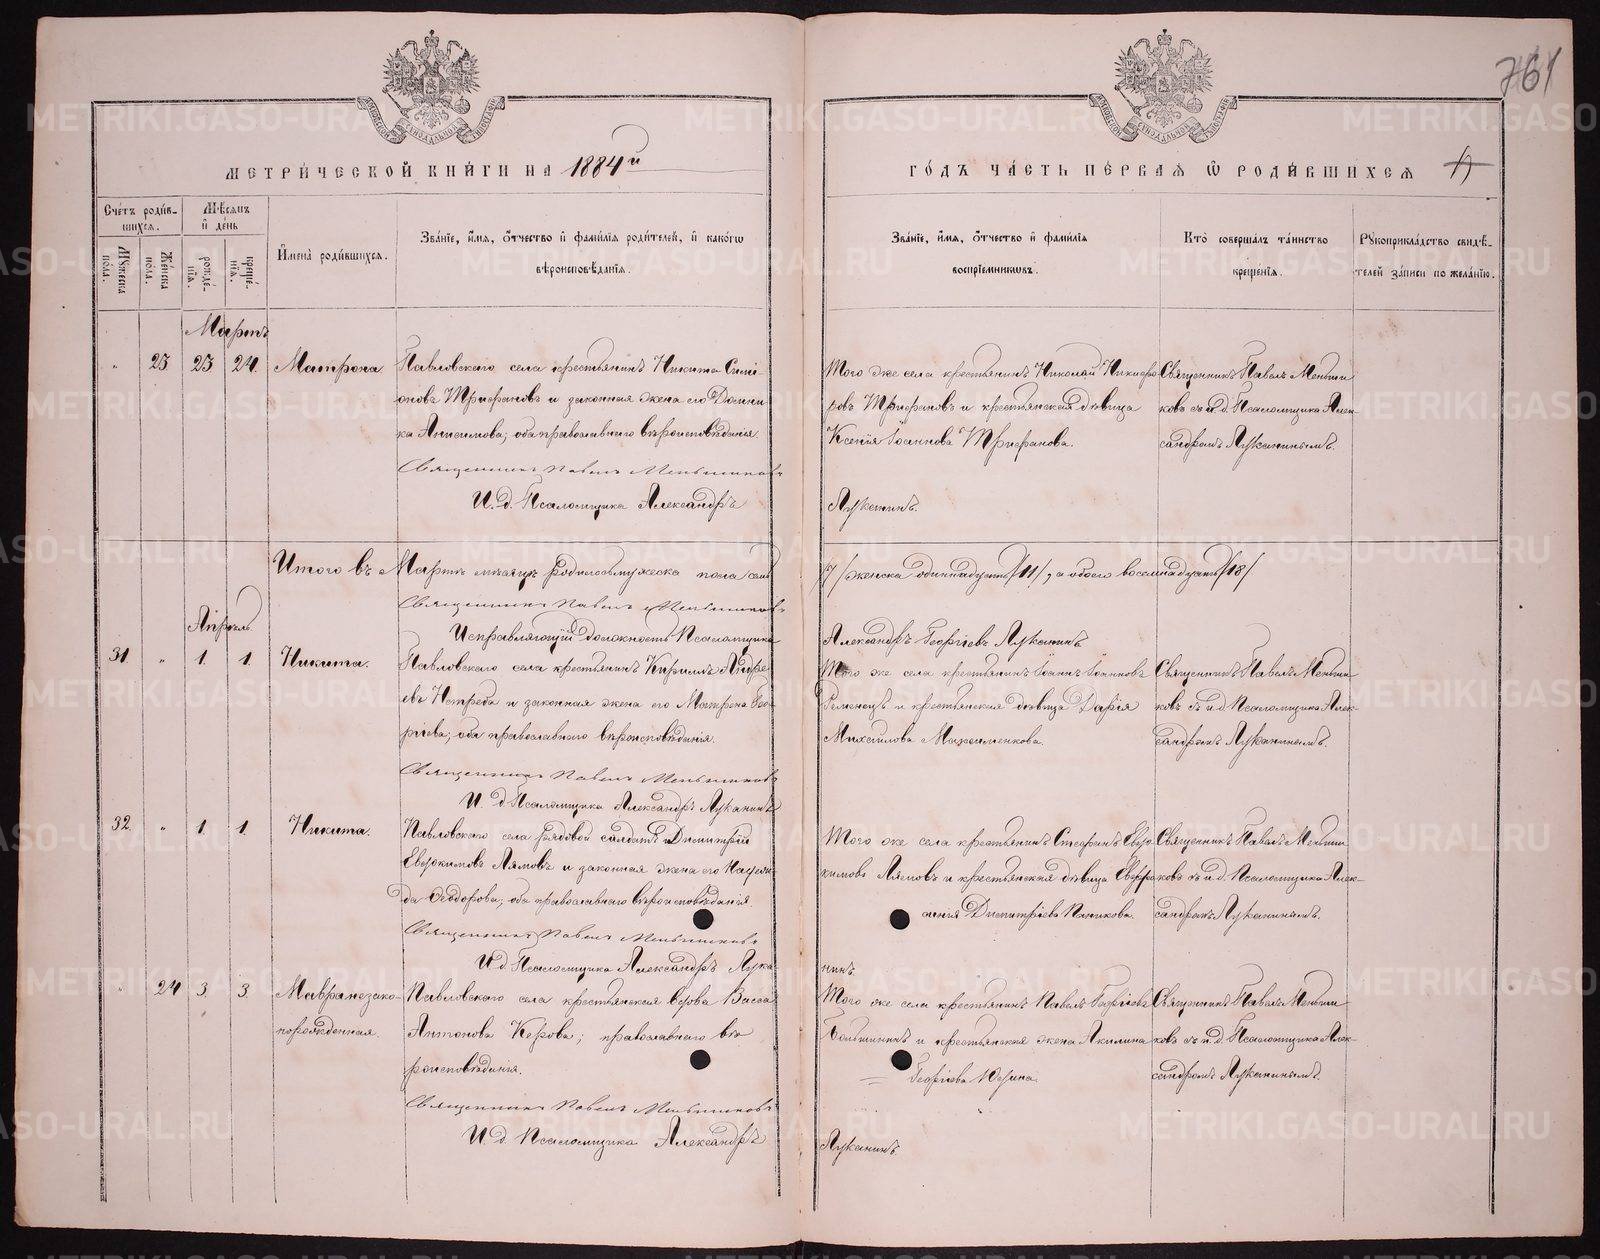 761
МЕТРИ́ЧЕСКОЙ КНИ́ГИ НА 1884й
ГО́ДЪ ЧА́СТЬ ПЕ́РВАѦ Ѡ РОДИ́ВШИХСѦ
Сче́тъ роди́в-
шихся.
Мѣ́сяцъ
и де́нь
Мꙋ́жеска
пола.
Же́нска
пола.
рожде́-
нїѧ.
креще́-
нїѧ.
И҆мена̀ роди́вшихсѧ.
Зва́нїе, и҆́мѧ, ѻ҆́тчество и҆ фами́лїѧ роди́телей, и҆ како́гѡ
вѣроисповѣ́данїѧ.
Зва́нїе, и҆́мѧ, ѻ҆́тчество и҆ фами́лїѧ
воспрїе́мникѡвъ.
Кто̀ соверша́лъ та́инство
креще́нїѧ.
Рꙋкоприкла́дство свидѣ́-
телей за́писи по жела́нїю.
Мартъ
" 23 23 24. Матрона. Павловскаго села крестьянинъ Никита Сими-
оновъ Трифановъ и законная жена его Домни-
ка Анисимова; оба православнаго вѣроисповѣданія.
Священникъ Павелъ Меньшиковъ
И. д. Псаломщика Александръ
Того же села крестьянинъ Николай Никифо-
ровъ Трифановъ и крестьянская дѣвица
Ксенія Іоаннова Трифанова.
Луканинъ.
Священникъ Павелъ Меньши-
ковъ съ и. д. Псаломщика Алек-
сандромъ Луканинымъ.
Итого въ Мартѣ мѣсяцѣ родилось мужеска пола семь
/7/ женска одиннадцать /11/, а обоего восемнадцать /18/
Священникъ Павелъ Меньшиковъ
Исправляющій должность Псаломщика
Александръ Георгіевъ Луканинъ
Апрѣль.
31. " 1. 1. Никита. Павловскаго села крестьянинъ Кирилъ Андре-
евъ и законная жена его Матрона Геор-
гіева; оба православнаго вѣроисповѣданія.
Священникъ Павелъ Меньшиковъ
И. д. Псаломщика Александръ Луканинъ
Того же села крестьянинъ Іоаннъ Іоанновъ
Ременецъ и крестьянская дѣвица Дарія
Михаилова Максименкова.
Священникъ Павелъ Меньши-
ковъ съ и. д. Псаломщика Алек-
сандромъ Луканинымъ.
32. " 1. 1. Никита. Павловскаго села рядовой солдатъ Димитрій
Евдокимовъ Лямовъ и законная жена его
Ѳеодорова; оба православнаго вѣроисповѣданія.
Священникъ Павелъ Меньшиковъ
И. д. Псаломщика Александръ Лука-
нинъ
Того же села крестьянинъ Стефанъ Евдо-
кимовъ Лямовъ и крестьянская дѣвица Евфро-
синія Димитріева Паникова.
Священникъ Павелъ Меньши-
ковъ съ и. д. Псаломщика Алек-
сандромъ Луканинымъ.
" 24 3. 3. Мавра незако-
норожденная.
Павловскаго села крестьянская вдова Васса
Антонова Керова; православнаго вѣ-
роисповѣданія.
Священникъ Павелъ Меньшиковъ
И. д. Псаломщика Александръ
Того же села крестьянинъ Павелъ Георгіевъ
и крестьянская жена Акилина
Георгіева Юрина.
Луканинъ.
Священникъ Павелъ Меньши-
ковъ съ и. д. Псаломщика Алек-
сандромъ Луканинымъ.
METRIKI.GASO-URAL.RU